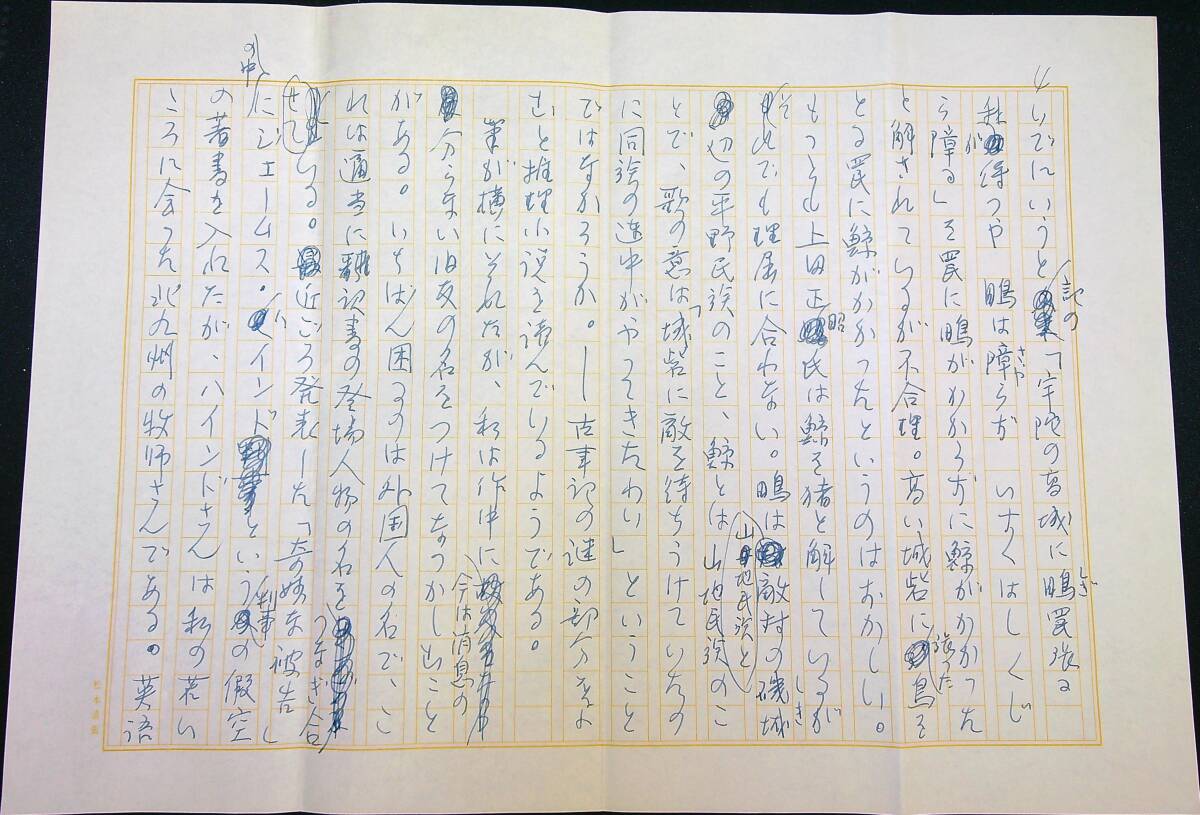 4
ついでにいうと、記の「宇陀の高城に鴫罠張る
しぎ
我が待つや 鴫は障らず いすくはし くじ
さや
ら障る」を罠に鴫がかからずに鯨がかかった
と解されているが不合理。高い城砦に張った鳥を
とる罠に鯨がかかったというのはおかしい。
もっとも上田正昭氏は鯨を猪と解しているが
それでも理屈に合わない。鴫は敵対の磯城
しき
辺の平野民族のこと、鯨とは山地民族のこ
山地民族と
とで、歌の意は「城砦に敵を待ちうけていたの
に同族の連中がやってきたわい」ということ
ではなかろうか。――古事記の謎の部分をよ
むと推理小説を読んでいるようである。
筆が横にそれたが、私は作中に今は消息の
分らない旧友の名をつけてなつかしむこと
がある。いちばん困るのは外国人の名で、こ
れは適当に翻訳書の登場人物の名をつなぎ合
せている。近ごろ発表した「奇妙な被告」
の中にジェームス・ハインド判事という仮空
の著書を入れたが、ハインドさんは私の若い
ころに会った北九州の牧師さんである。英語
松本清張